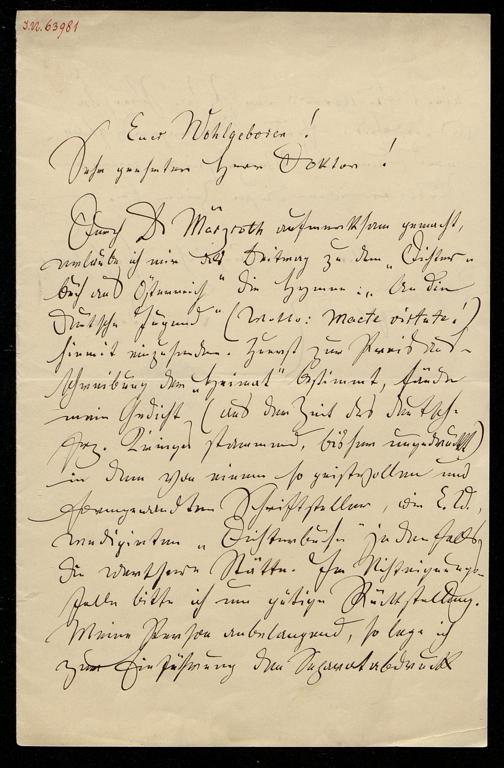 J.N. 63981
Euer Wohlgeboren!
Sehr geehrter Herr Doktor!
Durch Dr Märzroth aufmerksam gemacht,
erlaube ich mir als Beitrag zu dem „Dichter-
buch aus Österreich" die Hymne: „An die
deutsche Jugend" (Motto: Macte virtute!)
hiermit einzusenden. Zuerst zur Preisaus-
schreibung der „Heimat" bestimmt, fände
mein Gedicht (aus der Zeit des deutsch-
frz. Krieges stammend, bisher ungedruckt)
in dem von einem so geistvollen und
formgewandten Schriftsteller, wie E. W.,
redigirten „Dichterbuche" jedenfalls
die werthere Stätte. Im Nichteignungs-
falle bitte ich um gütige Rückstellung.
Meine Person anbelangend, so lege ich
zur Einführung den Separatabdruck